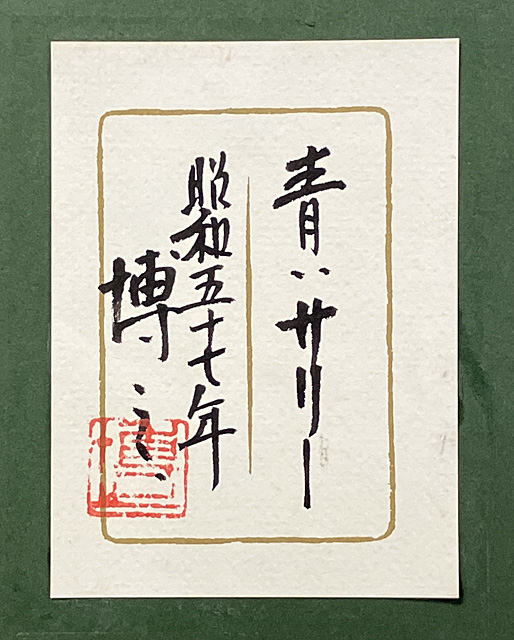 青いサリー
昭和五十七年
博之